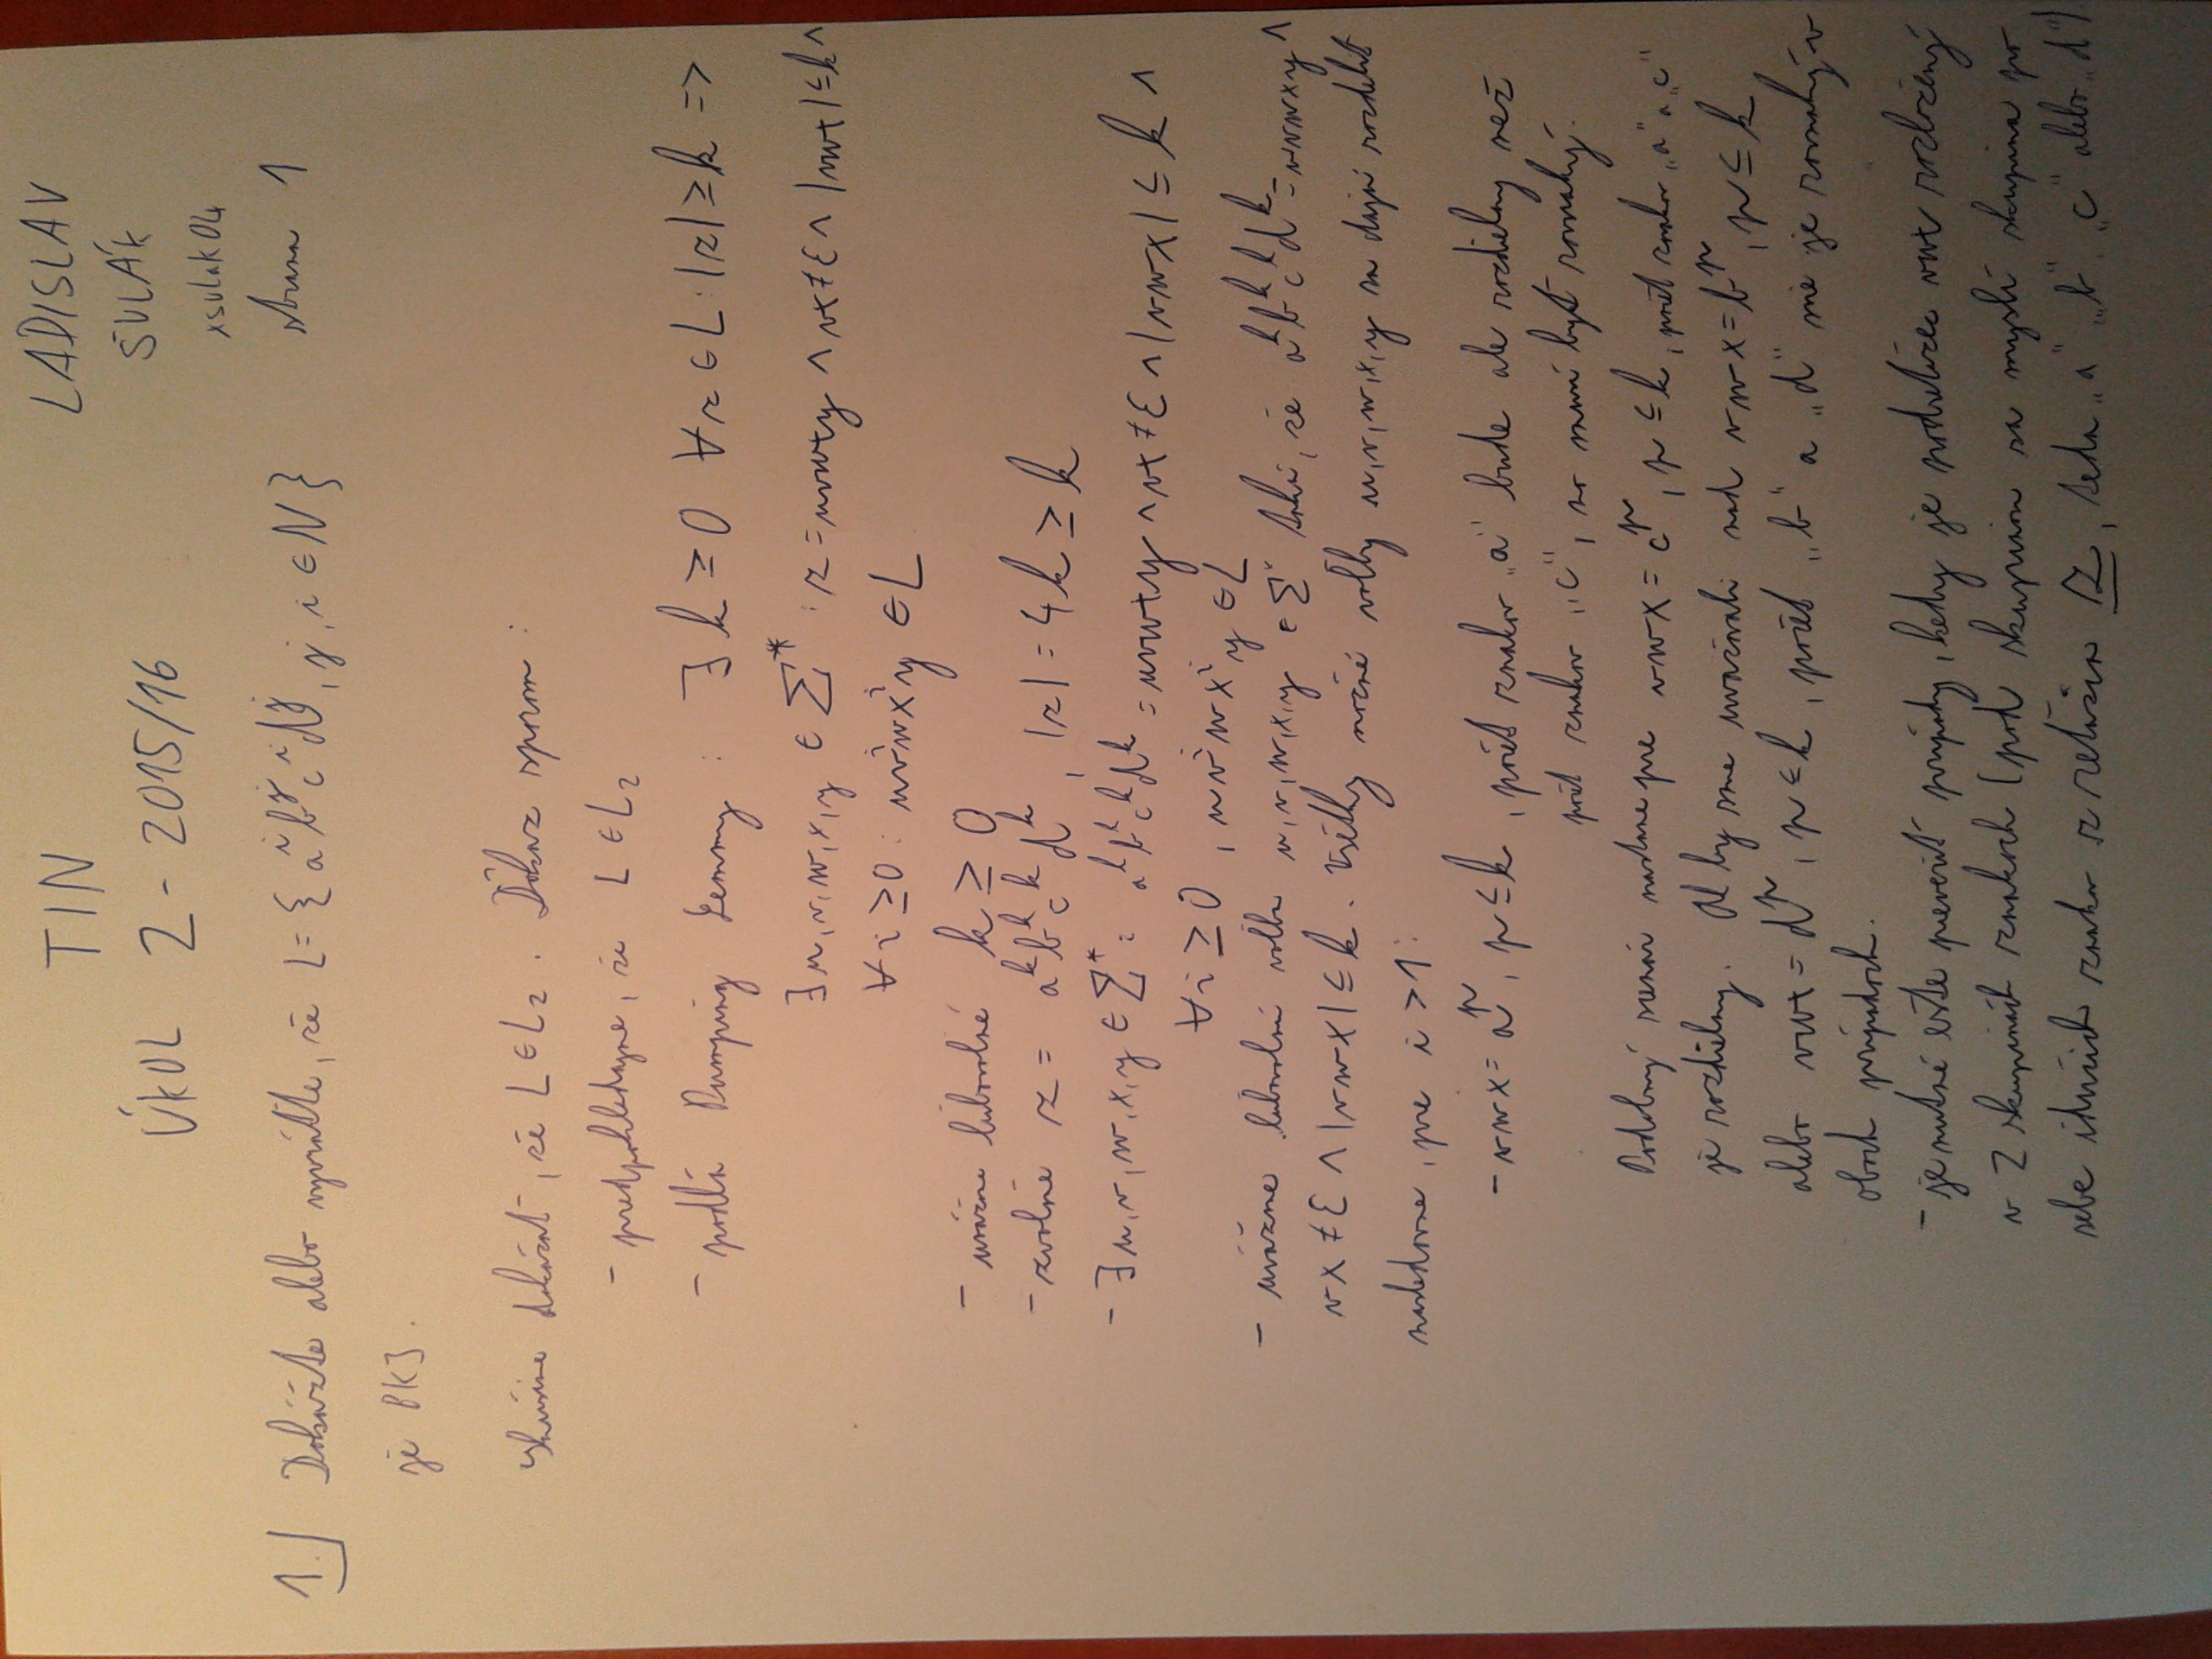 TIN
LADISLAV
ÚKOL 2 - 2015/16
ŠULÁK
xsulak04
strana 1
1.) Dokážte alebo vyvráťte, že L = { aⁱbʲcⁱdʲ, j, i ∈ N }
je BKJ.
Skúsime dokázať, že L ∈ L₂. Dôkaz sporom :
- predpokladajme, že L ∈ L₂
- podľa Pumping Lemmy : ∃ k ≥ 0 ∀z ∈ L : |z| ≥ k =>
∃ u, v, w, x, y ∈ Σ* : z = uvwxy ∧ vx ≠ ε ∧ |vwx| ≤ k ∧
∀ i ≥ 0 : uvⁱwxⁱy ∈ L
- uvážme ľubovolné k ≥ 0
- zvolme z = aᵏbᵏcᵏdᵏ, |z| = 4k ≥ k
- ∃ u, v, w, x, y ∈ Σ* : aᵏbᵏcᵏdᵏ = uvwxy ∧ vx ≠ ε ∧ |vwx| ≤ k ∧
∀ i ≥ 0, uvⁱwxⁱy ∈ L
- uvážme ľubovolnú voľbu u, v, w, x, y ∈ Σ* takú, že aᵏbᵏcᵏdᵏ = uvwxy ∧
vx ≠ ε ∧ |vwx| ≤ k. Všetky možné voľby u, v, w, x, y sa dajú rozdeliť
nasledovne, pre i > 1 :
- vwx = aᵖ, p ≤ k, počet znakov „a" bude ale rozdielny než
počet znakov „c", no musí byť rovnaký.
Podobný scenár nastane pre vwx = cᵖ, p ≤ k, počet znakov „a" a „c"
je rozdielny. Ak by sme uvažovali nad vwx = bᵖ, p ≤ k
alebo vwx = dᵖ, p ≤ k, počet „b" a „d" nie je rovnaký v
oboch prípadoch.
- je nutné ešte preveriť prípady, kedy je podreťazec vwx rozložený
v 2 skupinách znakoch (pod skupinou sa myslí skupina po
sebe idúcich znakov z reťazca z, teda „a" „b" „c" alebo „d")